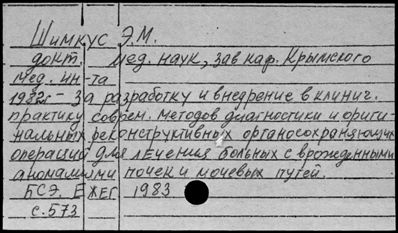 Шимкус Э.М.
докт. мед. наук, зав каф. Крымского
мед. ин-та
1982г - За разработку и внедрение в клинич.
практику соврем. методов диагностики и ориги-
нальных реконструктивных органосохраняющих
операций для лечения больных с врожденными
аномалиями почек и мочевых путей.
БСЭ. ЕЖЕГ 1983
с. 573